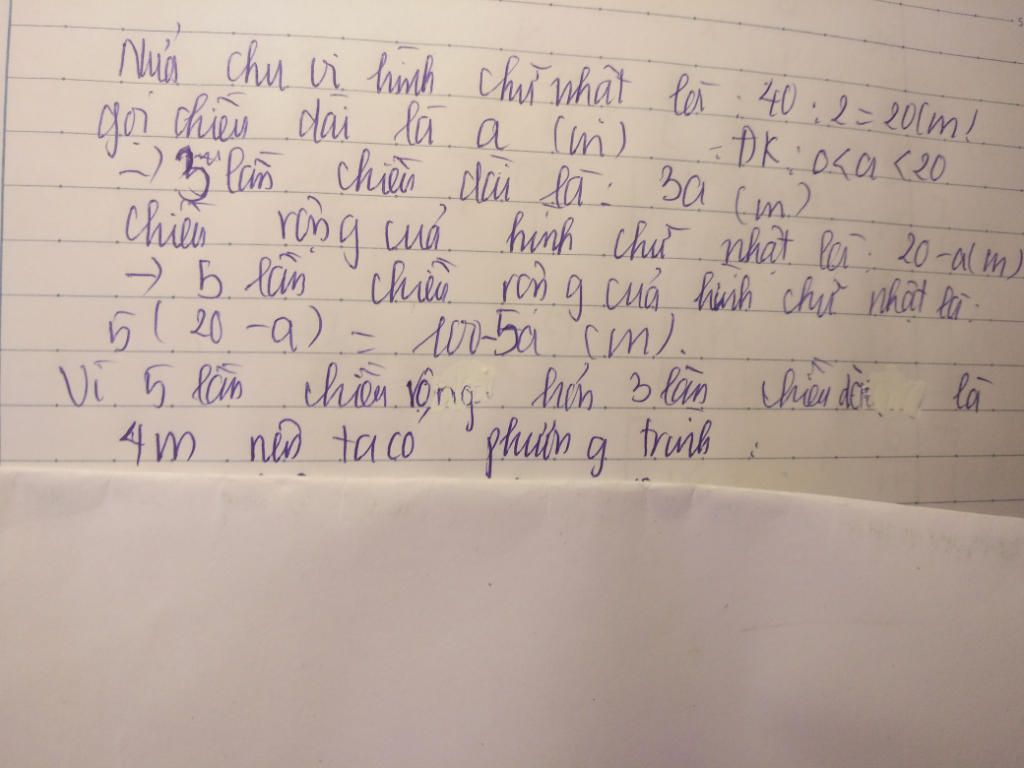 Nửa chu vi hình chữ nhật là : 40 : 2 = 20(m)
gọi chiều dài là a (m) - ĐK : 0<a<20
-> 3 lần chiều dài là : 3a (m)
chiều rộng của hình chữ nhật là : 20-a(m)
-> 5 lần chiều rộng của hình chữ nhật là :
5(20-a) = 100-5a (m).
Vì 5 lần chiều rộng hơn 3 lần chiều dài là
4m nên ta có phương trình :